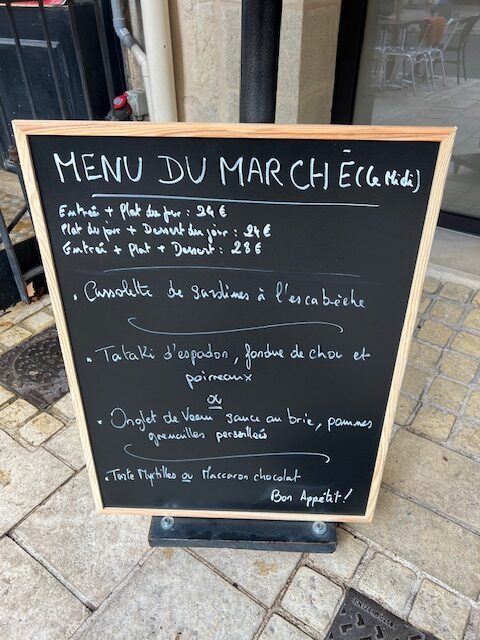 MENU DU MARCHÉ (Le Midi)
Entrée + Plat du jour : 24 €
Plat du jour + Dessert du jour : 24 €
Entrée + Plat + Dessert : 28 €
. Cassolette de sardines à l'escabèche
. Tataki d'espadon, fondue de chou et
poireaux
ou
. Onglet de Veau sauce au brie, pommes
grenailles persillées
. Tarte Myrtilles ou Maccaron chocolat
Bon Appétit !